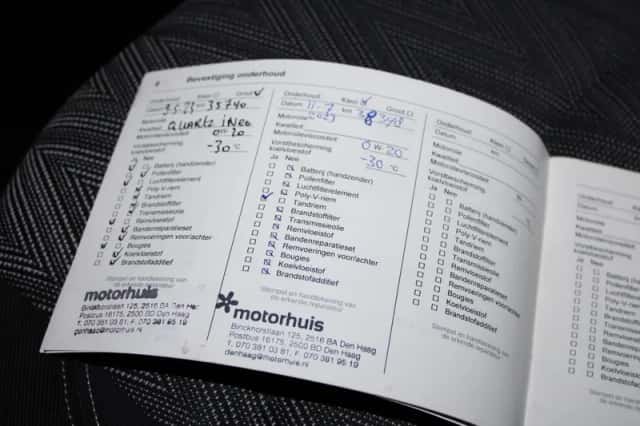 Bevestiging onderhoud
Onderhoud Klein Groot
Datum 3.5.23 - 35740
Motorolie
Kwaliteit QUARTZ iNEO
Motorolieviscositeit 0W 20
Vorstbescherming
koelvloeistof -30 °C
Ja Nee
Batterij (handzender)
Pollenfilter
Luchtfilterelement
Poly-V-riem
Tandriem
Brandstoffilter
Transmissieolie
Remvloeistof
Bandenreparatieset
Remvoeringen voor/achter
Bougies
Koelvloeistof
Brandstofadditief
Stempel en handtekening van
de erkende reparateur
motorhuis
Binckhorstlaan 125, 2516 BA Den Haag
Postbus 16175, 2500 BD Den Haag
t. 070 381 03 81, F. 070 381 95 19
denhaag@motorhuis.nl
Onderhoud Klein Groot
Datum km
Motorolie
Kwaliteit
Motorolieviscositeit 0 W 20
Vorstbescherming
koelvloeistof -30 °C
Ja Nee
Batterij (handzender)
Pollenfilter
Luchtfilterelement
Poly-V-riem
Tandriem
Brandstoffilter
Transmissieolie
Remvloeistof
Bandenreparatieset
Remvoeringen voor/achter
Bougies
Koelvloeistof
Brandstofadditief
Stempel en handtekening van
de erkende reparateur
motorhuis
Binckhorstlaan 125, 2516 BA Den Haag
Postbus 16175, 2500 BD Den Haag
t. 070 381 03 81, F. 070 381 95 19
denhaag@motorhuis.nl
Onderhoud Klein Groot
Datum km
Motorolie
Kwaliteit
Motorolieviscositeit
Vorstbescherming
koelvloeistof
Ja Nee
Batterij (handzender)
Pollenfilter
Luchtfilterelement
Poly-V-riem
Tandriem
Brandstoffilter
Transmissieolie
Remvloeistof
Bandenreparatieset
Remvoeringen voor/achter
Bougies
Koelvloeistof
Brandstofadditief
Stempel en handtekening van
de erkende reparateur
Onderhoud
Datum
Motorolie
Kwaliteit
Motorolieviscositeit
Vorstbescherming
koelvloeistof
Ja Nee